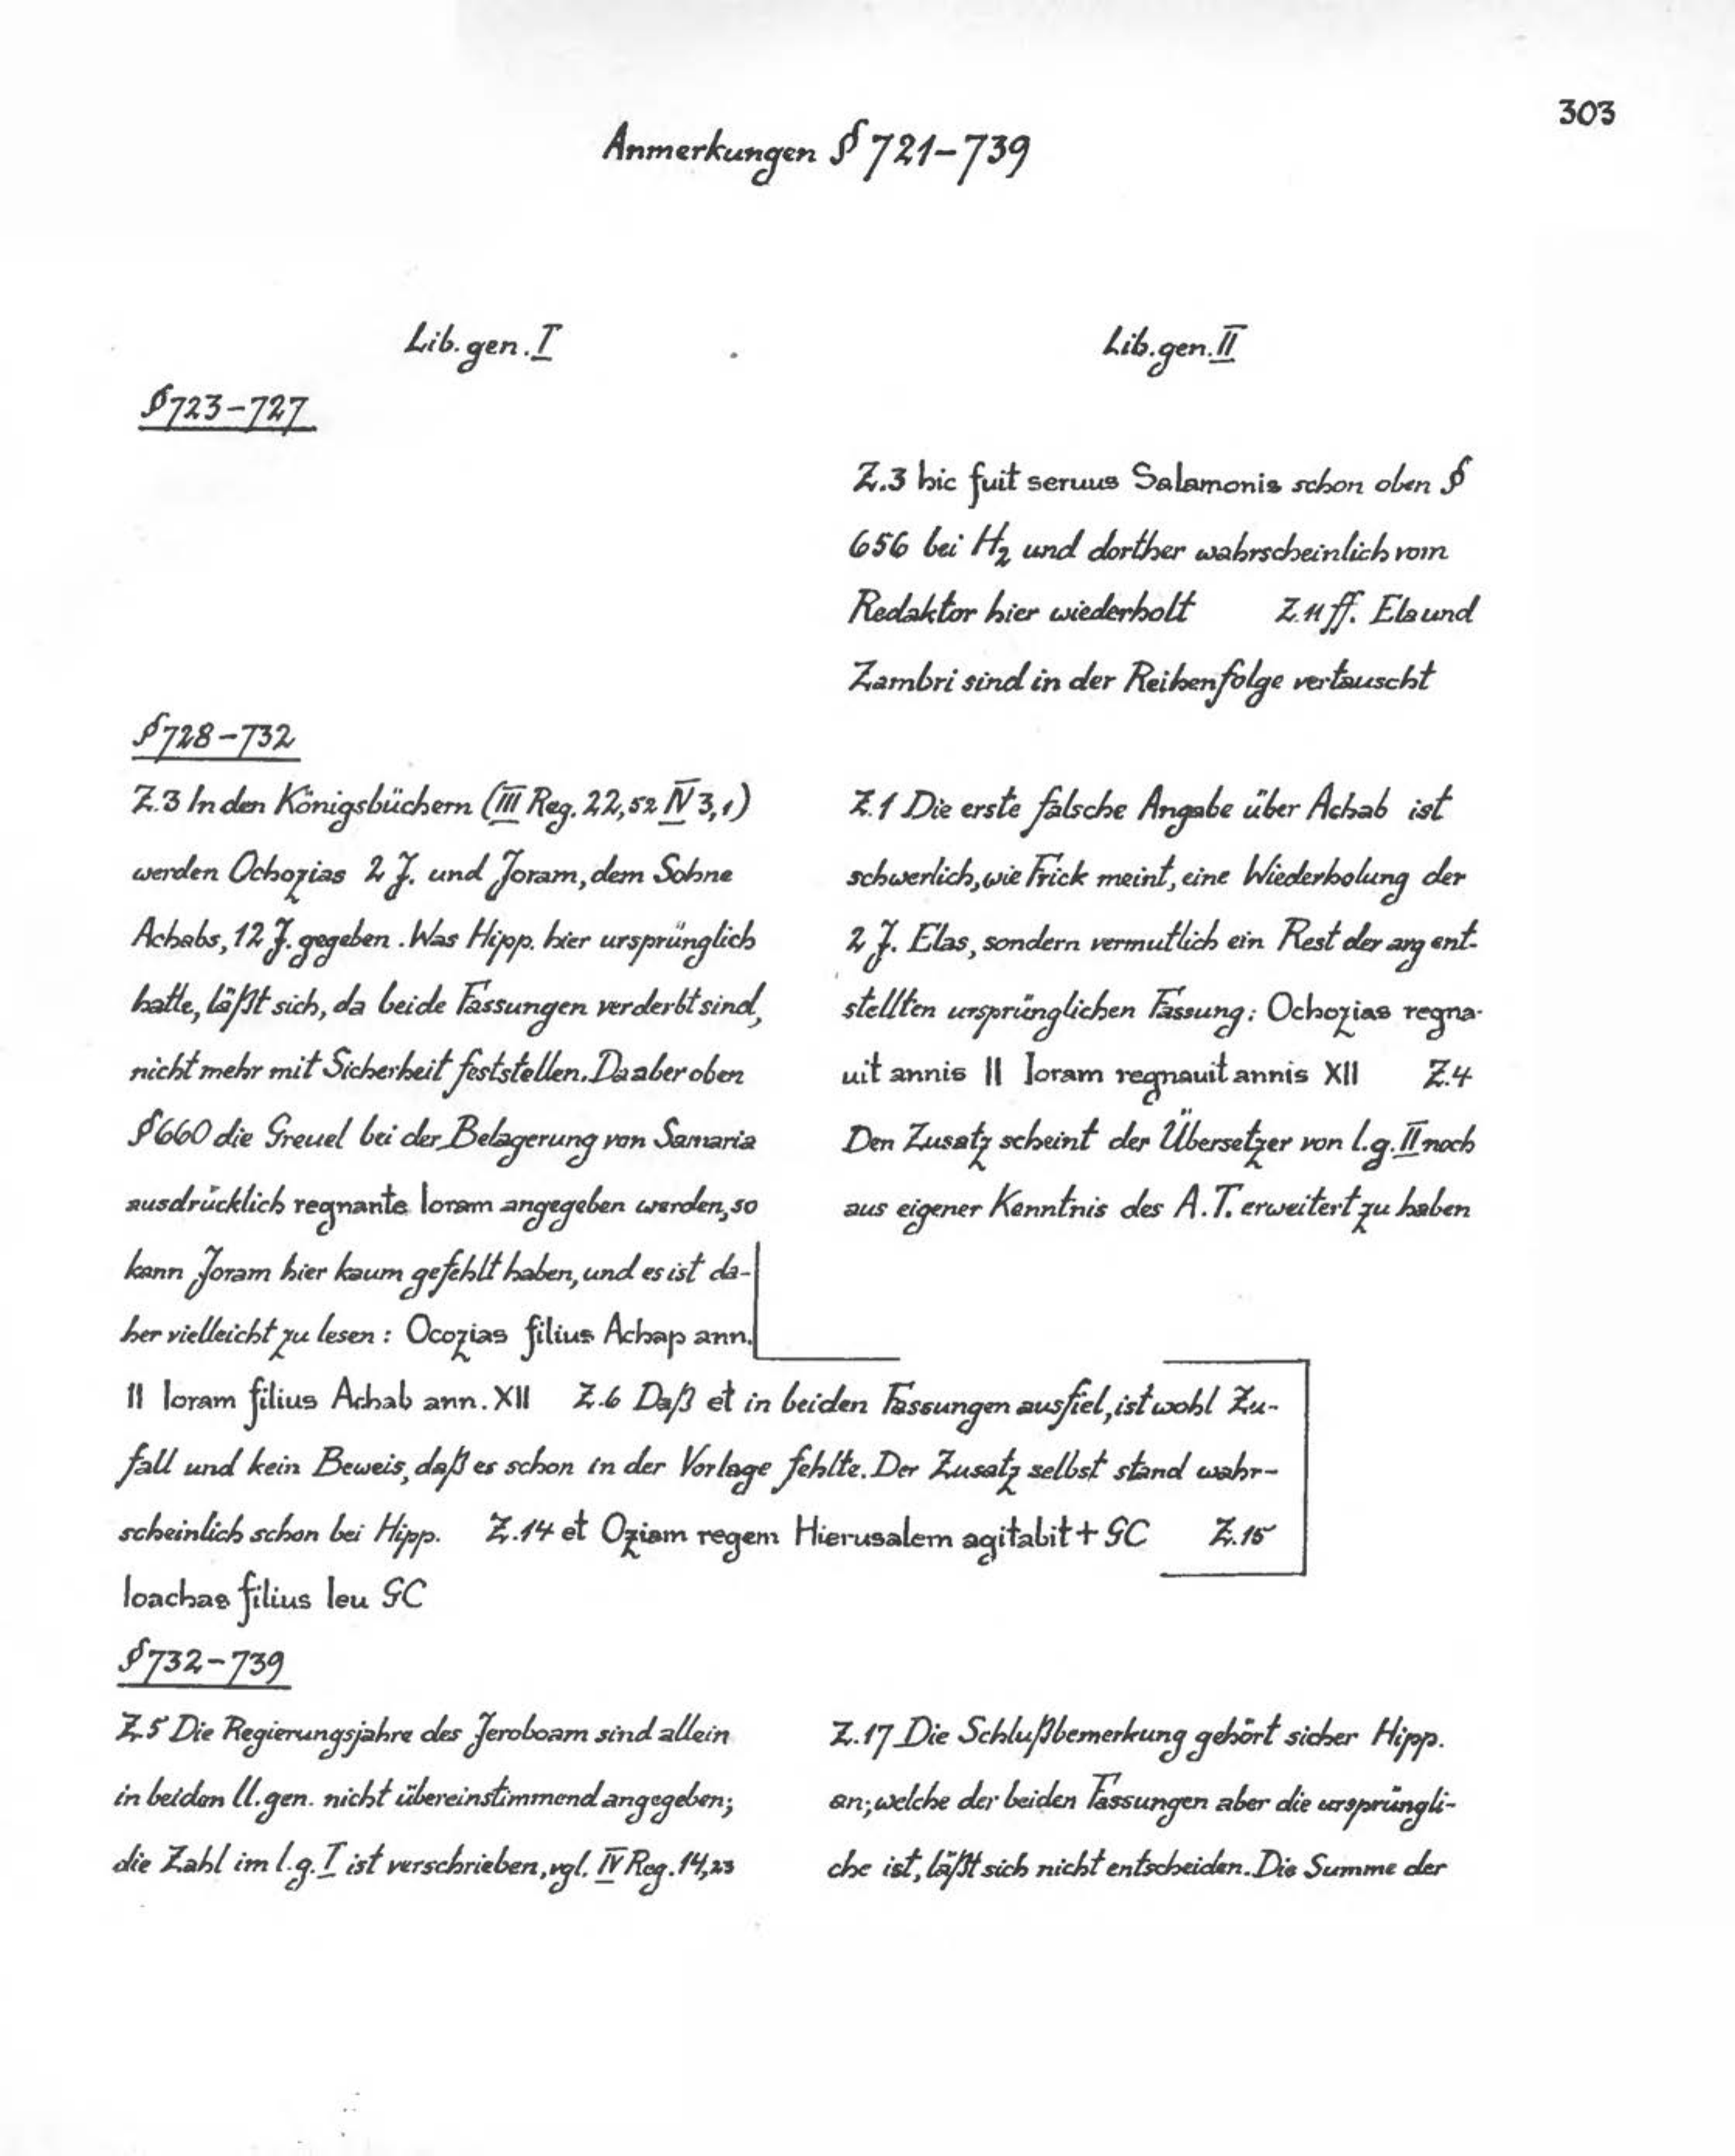 303
Anmerkungen § 721-739
Lib. gen. I
Lib. gen. II
§ 723-727
Z.3 hic fuit seruus Salamonis schon oben §
656 bei H2 und dorther wahrscheinlich vom
Redaktor hier wiederholt Z.11 ff. Ela und
Zambri sind in der Reihenfolge vertauscht
§ 728-732
Z.3 In den Königsbüchern (III Reg. 22,52 IV 3,1)
werden Ochozias 2 J. und Joram, dem Sohne
Achabs, 12 J. gegeben. Was Hipp. hier ursprünglich
hatte, läßt sich, da beide Fassungen verderbt sind,
nicht mehr mit Sicherheit feststellen. Da aber oben
§ 660 die Greuel bei der Belagerung von Samaria
ausdrücklich regnante Ioram angegeben werden, so
kann Joram hier kaum gefehlt haben, und es ist da-
her vielleicht zu lesen: Ocozias filius Achap ann.
II Ioram filius Achab ann. XII Z.6 Daß et in beiden Fassungen ausfiel, ist wohl Zu-
fall und kein Beweis, daß es schon in der Vorlage fehlte. Der Zusatz selbst stand wahr-
scheinlich schon bei Hipp. Z.14 et Oziam regem Hierusalem agitabit + GC Z.15
Ioachas filius Ieu GC
Z.1 Die erste falsche Angabe über Achab ist
schwerlich, wie Frick meint, eine Wiederholung der
2 J. Elas, sondern vermutlich ein Rest der arg ent-
stellten ursprünglichen Fassung: Ochozias regna-
uit annis II Ioram regnauit annis XII Z.4
Den Zusatz scheint der Übersetzer von l.g. II noch
aus eigener Kenntnis des A.T. erweitert zu haben
§ 732-739
Z.5 Die Regierungsjahre des Jeroboam sind allein
in beiden ll. gen. nicht übereinstimmend angegeben;
die Zahl im l.g. I ist verschrieben, vgl. IV Reg. 14,23
Z.17 Die Schlußbemerkung gehört sicher Hipp.
an; welche der beiden Fassungen aber die ursprüngli-
che ist, läßt sich nicht entscheiden. Die Summe der